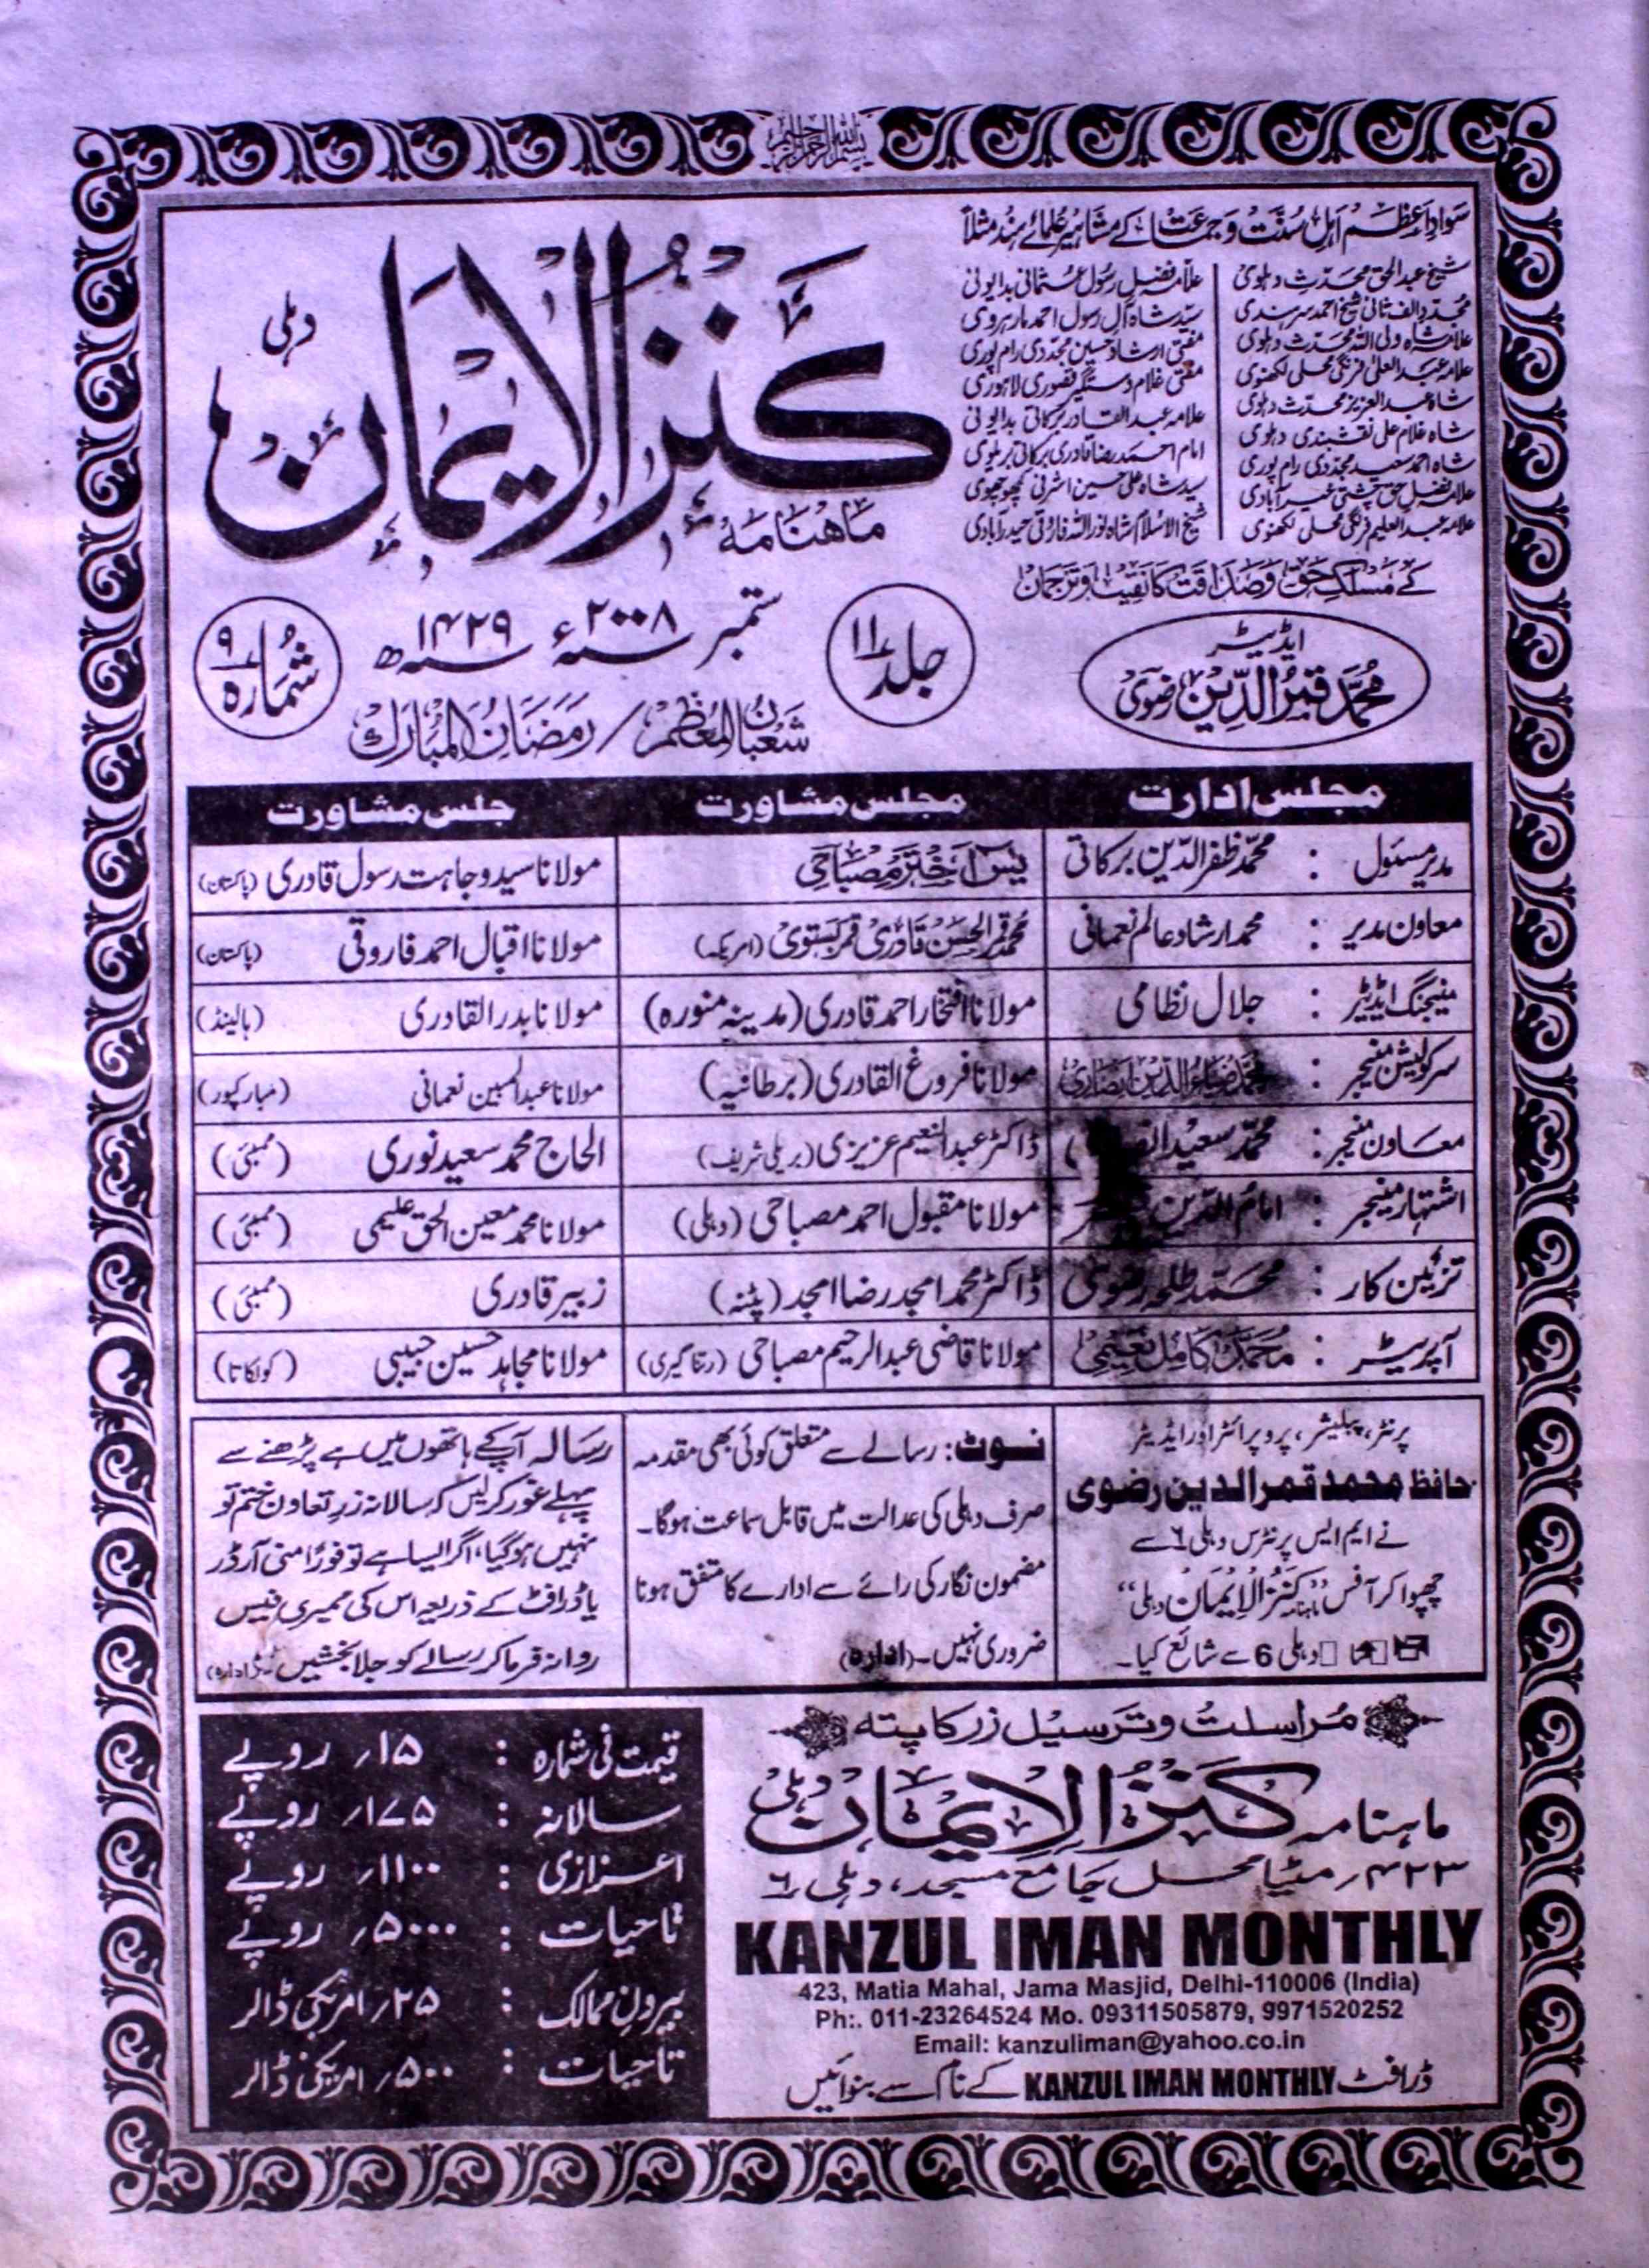 بسم الله الرحمن الرحیم
سواد اعظم اہل سنت و جماعت کے مشاہیر علمائے ہند مثلاً
شیخ عبدالحق محدث دہلوی
مجدد الف ثانی شیخ احمد سرہندی
علامہ شاہ ولی اللہ محدث دہلوی
علامہ عبدالعلی فرنگی محلی لکھنوی
شاہ عبدالعزیز محدث دہلوی
شاہ غلام علی نقشبندی دہلوی
شاہ احمد سعید مجددی رام پوری
علامہ فضل حق چشتی خیرآبادی
علامہ عبدالعلیم فرنگی محلی لکھنوی
علامہ فضل رسول عثمانی بدایونی
سید شاہ آل رسول احمد مارہروی
مفتی ارشاد حسین مجددی رام پوری
مفتی غلام دستگیر قصوری لاہوری
علامہ عبدالقادر برکاتی بدایونی
امام احمد رضا قادری برکاتی بریلوی
سید شاہ علی حسین اشرفی کچھوچھوی
شیخ الاسلام شاہ انوار اللہ فاروقی حیدرآبادی
کے مسلک حق و صداقت کا نقیب و ترجمان
کنز الایمان دہلی
ماہنامہ
ایڈیٹر
محمد قمر الدین رضوی
جلد ۱۱
ستمبر ۲۰۰۸ء ۱۴۲۹ھ
شعبان المعظم / رمضان المبارک
شمارہ ۹
مجلس ادارت
مجلس مشاورت
جلس مشاورت
مدیر مسئول : محمد ظفر الدین برکاتی
یٰس اختر مصباحی
مولانا سید وجاہت رسول قادری (پاکستان)
معاون مدیر : محمد ارشاد عالم نعمانی
محمد قمر الحسن قادری قمر بستوی (امریکہ)
مولانا اقبال احمد فاروقی (پاکستان)
منیجنگ ایڈیٹر : جلال نظامی
مولانا افتخار احمد قادری (مدینہ منورہ)
مولانا بدر القادری (ہالینڈ)
سرکولیشن منیجر : محمد ضیاء الدین انصاری
مولانا فروغ القادری (برطانیہ)
مولانا عبدالمبین نعمانی (مبارکپور)
معاون منیجر : محمد سعید
ڈاکٹر عبدالنعیم عزیزی (بریلی شریف)
الحاج محمد سعید نوری (ممبئی)
اشتہار منیجر : امام الدین
مولانا مقبول احمد مصباحی (دہلی)
مولانا محمد معین الحق علیمی (ممبئی)
تزئین کار : محمد طلحہ رضوی
ڈاکٹر محمد امجد رضا امجد (پٹنہ)
زبیر قادری (ممبئی)
آپریٹر : محمد کامل نعیمی
مولانا قاضی عبدالرحیم مصباحی (رتناگیری)
مولانا مجاہد حسین حبیبی (کولکاتا)
پرنٹر، پبلیشر، پروپرائٹر اور ایڈیٹر
حافظ محمد قمر الدین رضوی
نے ایم ایس پرنٹرس دہلی ۶ سے
چھپوا کر آفس "ماہنامہ کنز الایمان دہلی"
دہلی 6 سے شائع کیا۔
نوٹ: رسالے سے متعلق کوئی بھی مقدمہ
صرف دہلی کی عدالت میں قابل سماعت ہوگا۔
مضمون نگار کی رائے سے ادارے کا متفق ہونا
ضروری نہیں۔ (ادارہ)
رسالہ آپ کے ہاتھوں میں ہے پڑھنے سے
پہلے غور کرلیں کہ سالانہ زر تعاون ختم تو
نہیں ہوگیا، اگر ایسا ہے تو فوراً منی آرڈر
یا ڈرافٹ کے ذریعہ اس کی ممبری فیس
روانہ فرما کر رسالے کو جلا بخشیں۔ (ادارہ)
مراسلت و ترسیل زر کا پتہ
ماہنامہ کنز الایمان دہلی
۴۲۳، مٹیا محل جامع مسجد، دہلی ۶
KANZUL IMAN MONTHLY
423, Matia Mahal, Jama Masjid, Delhi-110006 (India)
Ph:. 011-23264524 Mo. 09311505879, 9971520252
Email: kanzuliman@yahoo.co.in
ڈرافٹ KANZUL IMAN MONTHLY کے نام سے بنوائیں
قیمت فی شمارہ : ۱۵؍ روپے
سالانہ : ۱۷۵؍ روپے
اعزازی : ۱۱۰۰؍ روپے
تاحیات : ۵۰۰۰؍ روپے
بیرون ممالک : ۲۵؍ امریکی ڈالر
تاحیات : ۵۰۰؍ امریکی ڈالر